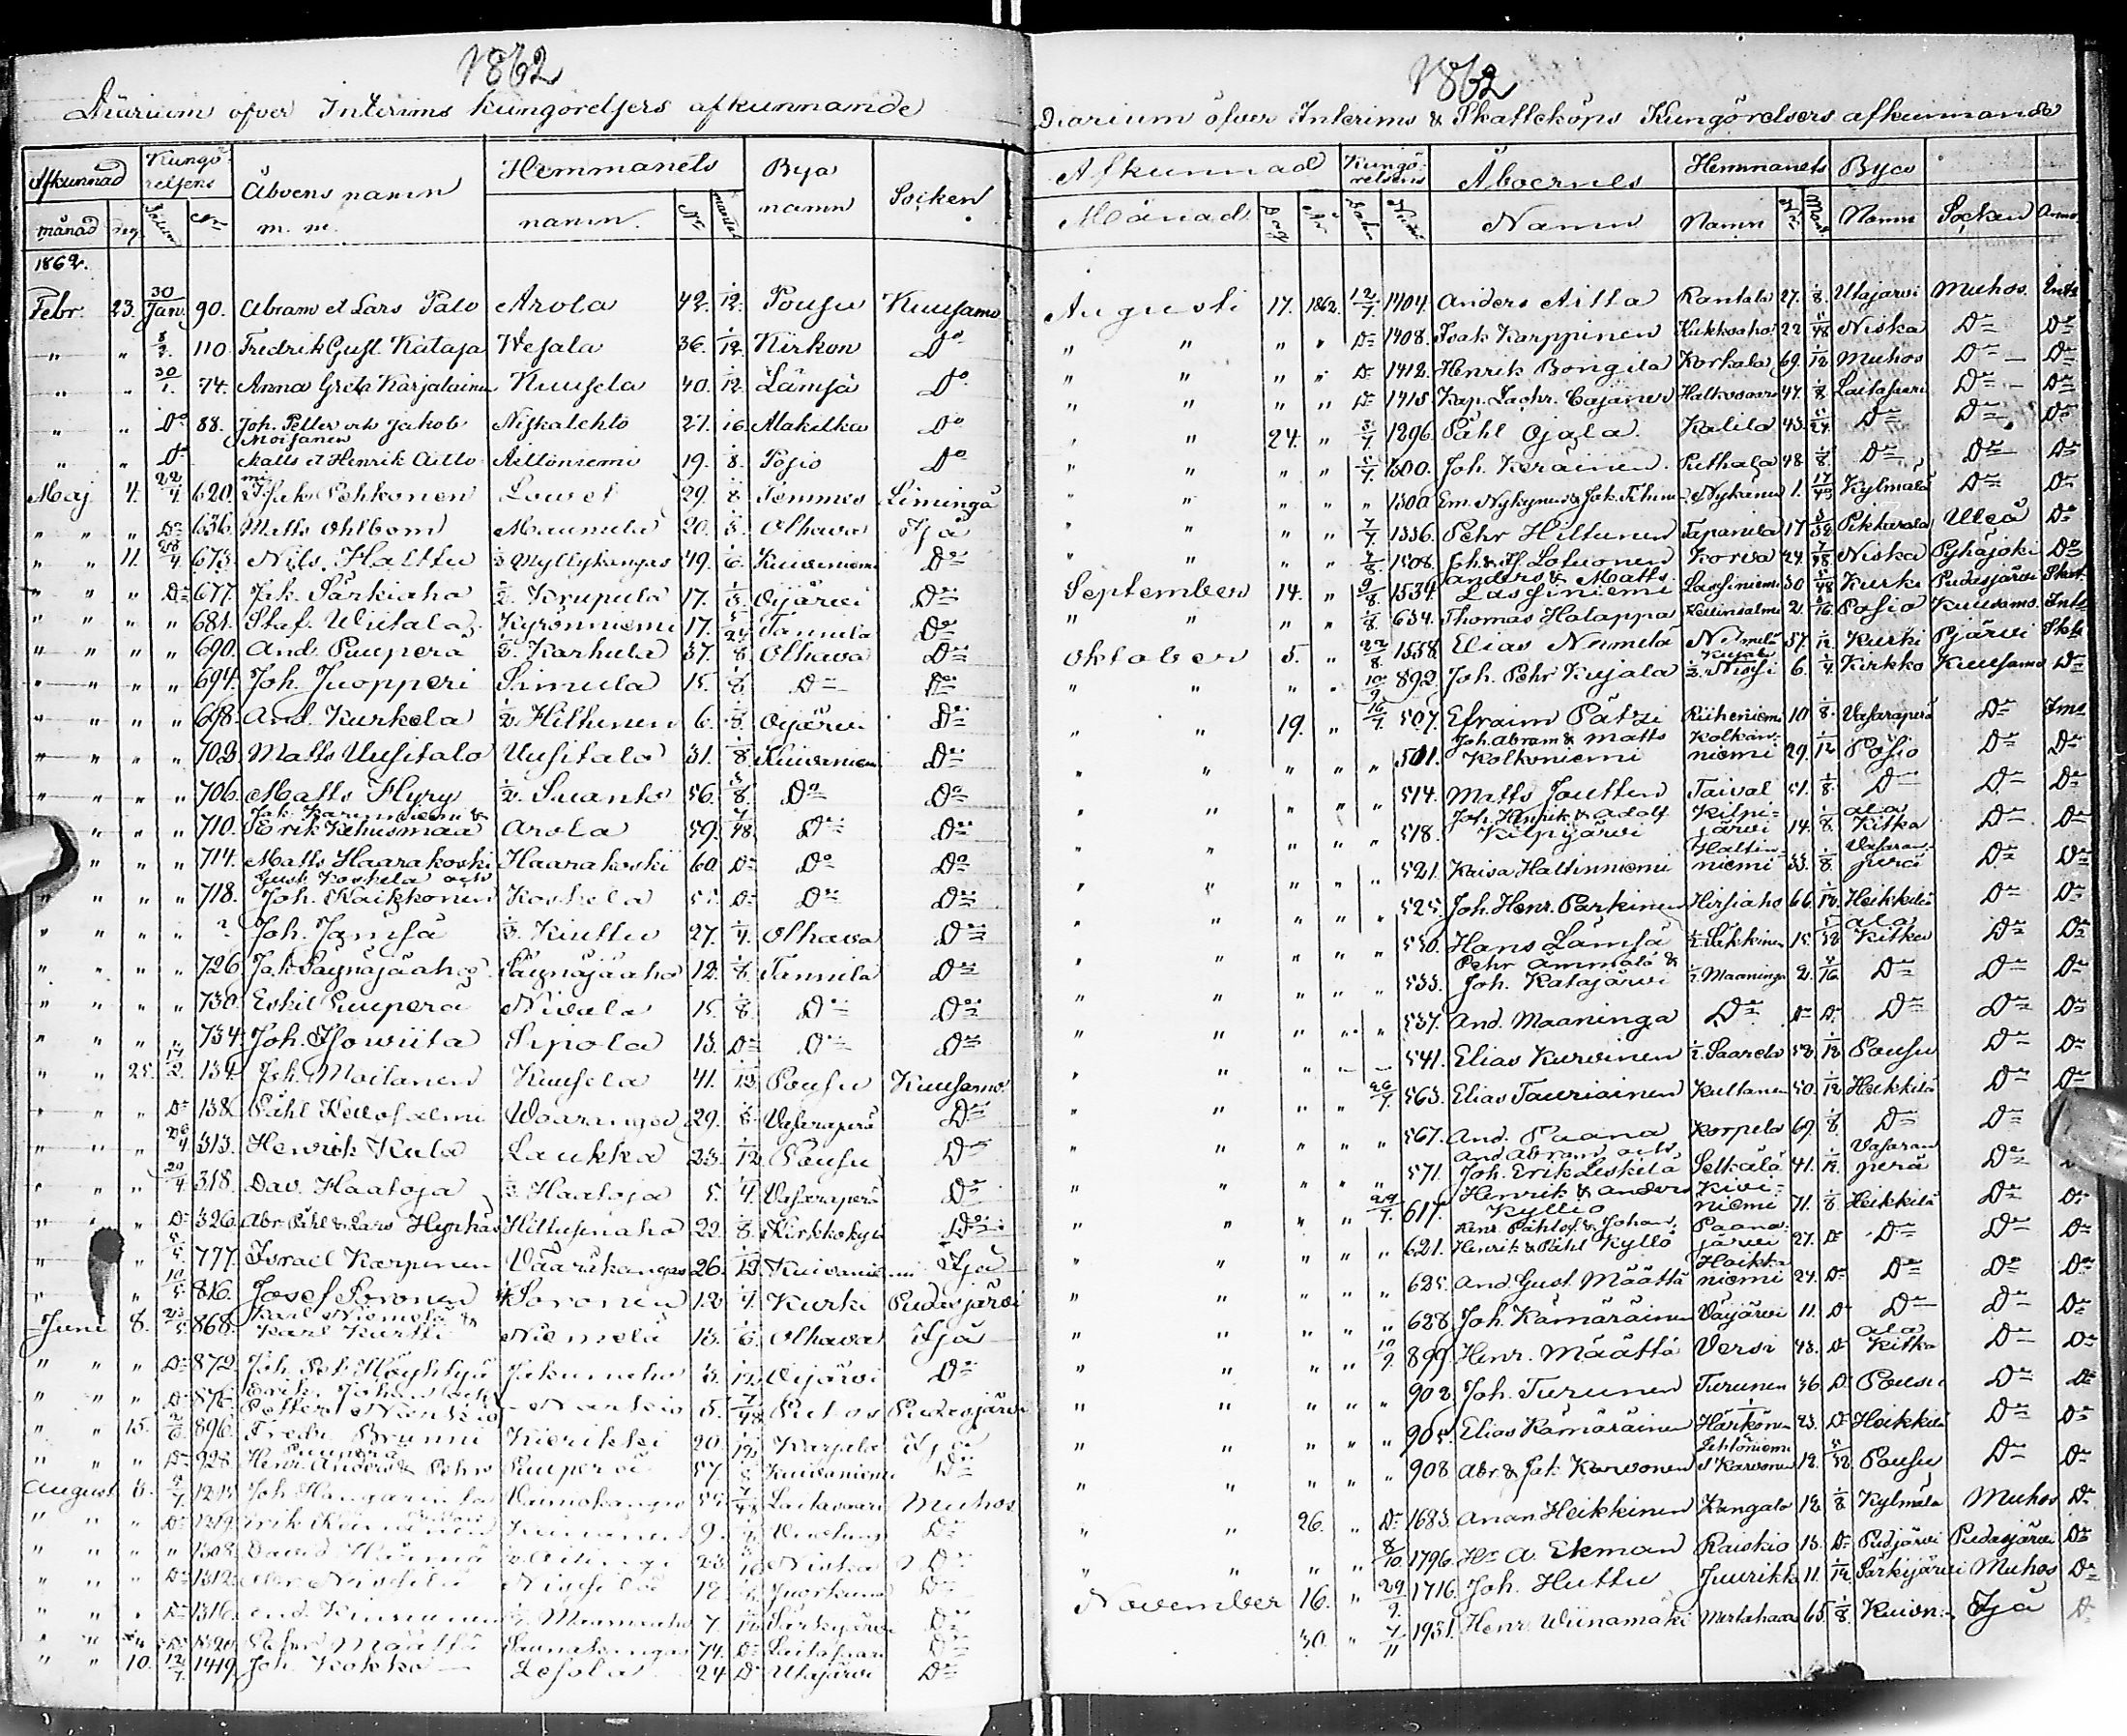 1862
Diarium öfver Interims kungörelsers afkunnande
Afkunnad Kungörelsens Åboens namn m. m. Hemmanets Bya namn Socken
månad Dag Datum No namn No mantal
1862.
Febr. 23. 30/Jan. 90. Abram et Lars Palo Arola 42. 1/12. Pousu Kuusamo
" " 8/2. 110. Fredrik Gust. Kataja Wesala 36. 1/12. Kirkon Do
" " 30/1. 74. Anna Greta Karjalainen Kuusela 40. 1/12. Lämsä Do
" " Do 88. Joh. Petter och Jakob Moisanen Niskalehto 27. 1/16. Alakitka Do
" " Do Matts et Henrik Aitto Aittoniemi 19. 1/8. Posio Do
Maj 4. 22/4 620. Jak. Pehkonen Louet 29. 1/8 Temmes Limingå
" " " Do 636. Matts Ohlbom Maunula 20. Olhava Ijå
" " 11. 28/4 673. Nils Halttu Myllykangas 49. 1/6. Kuivaniemi Do
" " " Do 677. Jak. Särkiaho Krupula 17. Oijärvi Do
" " " " 681. Staf. Wiitala Kyröniemi 17. 5/24 Tannila Do
" " " " 690. And. Puuperä Karhula 37. 1/8 Olhava Do
" " " " 694. Joh. Juopperi Simula 15. 1/8 Do Do
" " " " 698. And. Kurkela 1/2. Hiltunen 6. 1/8 Oijärvi Do
" " " " 702 Matts Uusitalo Uusitalo 31. 1/8 Kuivaniemi Do
" " " " 706. Matts Hyry 1/2. Suanto 56. 1/8. Do Do
" " " " 710. Erik Kehusmaa Arola 59. 7/48 Do Do
" " " " 714. Matts Haarakoski Haarakoski 60. Do Do Do
" " " " 718. Gust. Koskela och Joh. Kaikkonen Koskela Do Do Do
" " " " ? Joh. Jämsä Kiuttu 27. 1/4. Olhava Do
" " " " 726. Jak. Säynäjäaho Säynäjäaho 12. 1/8. Tannila Do
" " " " 730. Eskil Puuperä Nivala 15. 1/8. Do Do
" " " " 734. Joh. Howiita Sipola 13. Do Do Do
" " 25. 17/2. 134. Joh. Moilanen Kuusela 41. 1/12 Pousu Kuusamo
" " " Do 138. Påhl Kallosalmi Waaranga 29. 1/8 Vasaraperä Do
" " " 313. Henrik Kula Laukka 23. 1/12. Pousu Do
" " " 29/4. 318. Dav. Haatoja Haatoja 5. 1/4. Vasaraperä Do
" " " Do 326. Abr. Påhl & Lars Hyrkäs Hiltusenaho 22. 1/8. Kirkkokylä Do
" " 777. Israel Karpinen Väärikangas 26. 1/12. Kuivaniemi Ijå
" " 10/5 816. Josef Soronen Soronen 12 1/4. Kurki Pudasjärvi
Juni 8. 868. Karl Niemelä & Karl Kurtti Niemelä 13. 1/6. Olhava Ijå
" " " Do 872. Joh. Pet. Höyhtyä Jakunaho 3. 1/12 Oijärvi Do
" " " Do 876. Petter Nurkio Nurkio 5. 7/48 Puhos Pudasjärvi
" " 15. 2/6 896. Fredr. Brunni Kierikki 20. 1/12 Karjala Ijå
" " " Do 928. Henr. Anders & Pehr Puuperä Puuperä 57. Kuivaniemi Do
August 3. Joh. Hangarinta Vainiokangas 7/48 Laitasaari Muhos
" " " Do 1219. Erik Keinänen Keinänen 9. Do
" " " " 1308. David Härmä 23. Niska Do
" " " Do 1312. Nissilä Nissilä 12 Do
" " " Do 1316. And. Kinnunen 7. 1/12 Särkijärvi Do
" " " Do 1320. Pehr Määttä Saunakangas 74. Do Laitasaari Do
" " 10. 12/7. 1419. Joh. Kokko Lesola 24 Do Utajärvi Do
1862
Diarium öfver Interims & Skatteköps Kungörelsers afkunnande
Afkunnad Kungörelsens Åboernes Hemmanets Bya
Månad Dag År Datum Numr Namn Namn No Mant. Namn Socken Anm.
Augusti 17. 1862. 12/7. 1404. Anders Aitta Rantala 27. 1/8. Utajärvi Muhos Ints
" " " " Do 1408. Isak Karppinen Kukkoaho 22 5/48 Niska Do Do
" " " " Do 1412. Henrik Bongila Korkala 69. 1/12 Muhos Do Do
" " " " Do 1415. Kap. Zachr. Cajaner Halkosaari 47. 1/8 Laitasaari Do Do
" " 24. " 1296. Påhl Ojala Kalila 43. 5/24. Do Do Do
" " " " 1300. Joh. Keräinen Puthala 48 1/8. Do Do Do
" " " " " 1300 Em. Nykyri & Jak. Tihinen Nykänen 1. 17/48 Kylmälä Do Do
" " " " 7/7. 1336. Pehr Hiltunen Tapanila 17 Pikkarala Uleå Do
" " " " 1508. Joh. & Is. Lotuonen Korva 24. 7/48 Niska Pyhäjoki Do
September 14. " 9/8. 1534. Anders & Matts Lassiniemi Lassiniemi 30 5/48 Kurki Pudasjärvi Skat
" " " " 634. Thomas Halappa Kallinsalmi 2. 1/16. Posio Kuusamo Ints
Oktober 5. " 22/8. 1558. Elias Nirmilä Nirmilä 57. 1/12 Kurki Pjärvi Skat
" " " " 10/9. 892. Joh. Pehr Kujala Kujala 1/2. Nissi 6. 1/4 Kirkko Kuusamo Do
" " 19. " 16/7. 507. Efraim Pätsi Riiheniemi 10 1/8. Vasaraperä Do Ints
" " " " " 501. Joh. Abram & Matts Kolkoniemi Kolkoniemi 29. 1/12 Posio Do Do
" " " " " 514. Matts Joutten Taival 51. 1/8. Do Do Do
" " " " " 518. Joh. Henrik & Adolf Kilpijärvi Kilpijärvi 14. 1/8. ala Kitka Do Do
" " " " " 521. Kaisa Haltinniemi Haltinniemi 33. 1/8 Vasaranperä Do Do
" " " " " 525. Joh. Henr. Parkinen Hirsiaho 66. 1/12. Heikkilä Do Do
" " " " " 530. Hans Lämsä 1/2. Säkkinen 15. ala Kitka Do Do
" " " " " 533. Pehr Ämmälä & Joh. Katajärvi 1/2. Maaninga 2. 1/16 Do Do Do
" " " " " 537. And. Maaninga Do Do Do Do Do Do
" " " " " 541. Elias Kurvinen 1/2. Saarela 53. 1/12 Pousu Do Do
" " " " 26/7. 563. Elias Tauriainen Kultanen 50. 1/12 Heikkilä Do Do
" " " " " 567. And. Paana Korpela 69. 1/8. Do Do
" " " " " 571. And. Abram och Joh. Erik Leskelä Selkälä 41. 1/12. Vasaranperä Do
" " " " 29/7. 617. Henrik & Anders Kyllio Kiviniemi 71. 1/8 Heikkilä Do Do
" " " " " 621. Henr. Påhlsf. & Johan Henrik & Påhl Kyllö Paanajärvi 27. Do Do Do Do
" " " " " 625. And. Gust. Määttä Heikkiniemi 24. Do Do Do Do
" " " " " 628. Joh. Kämäräinen Väyjärvi 11. Do Do Do Do
" " " " 10/9. 899. Henr. Määttä Versi 43. Do ala Kitka Do Do
" " " " " 902. Joh. Turunen Turunen 36. Do Pousu Do Do
" " " " " 905. Elias Kämäräinen Härkönen 23. Do Heikkilä Do Do
" " " " " 908. Abr. & Jak. Karvonen Lehtoniemi & Karvonen 12. 5/32 Pousu Do Do
" " 26. " Do 1683. Anan. Heikkinen Kangalo 12 1/8 Kylmälä Muhos Do
" " " " 8/10 1796. Hr A. Ekman Raiskio 13. Do Pudjärvi Pudasjärvi Do
November 16. " 29/9. 1716. Joh. Huttu Juurikka 11. 1/12. Särkijärvi Muhos Do
30. " 7/11 1951. Henr. Wiinamäki Mertahaara 65. 1/8. Kuivn. Ijå Do